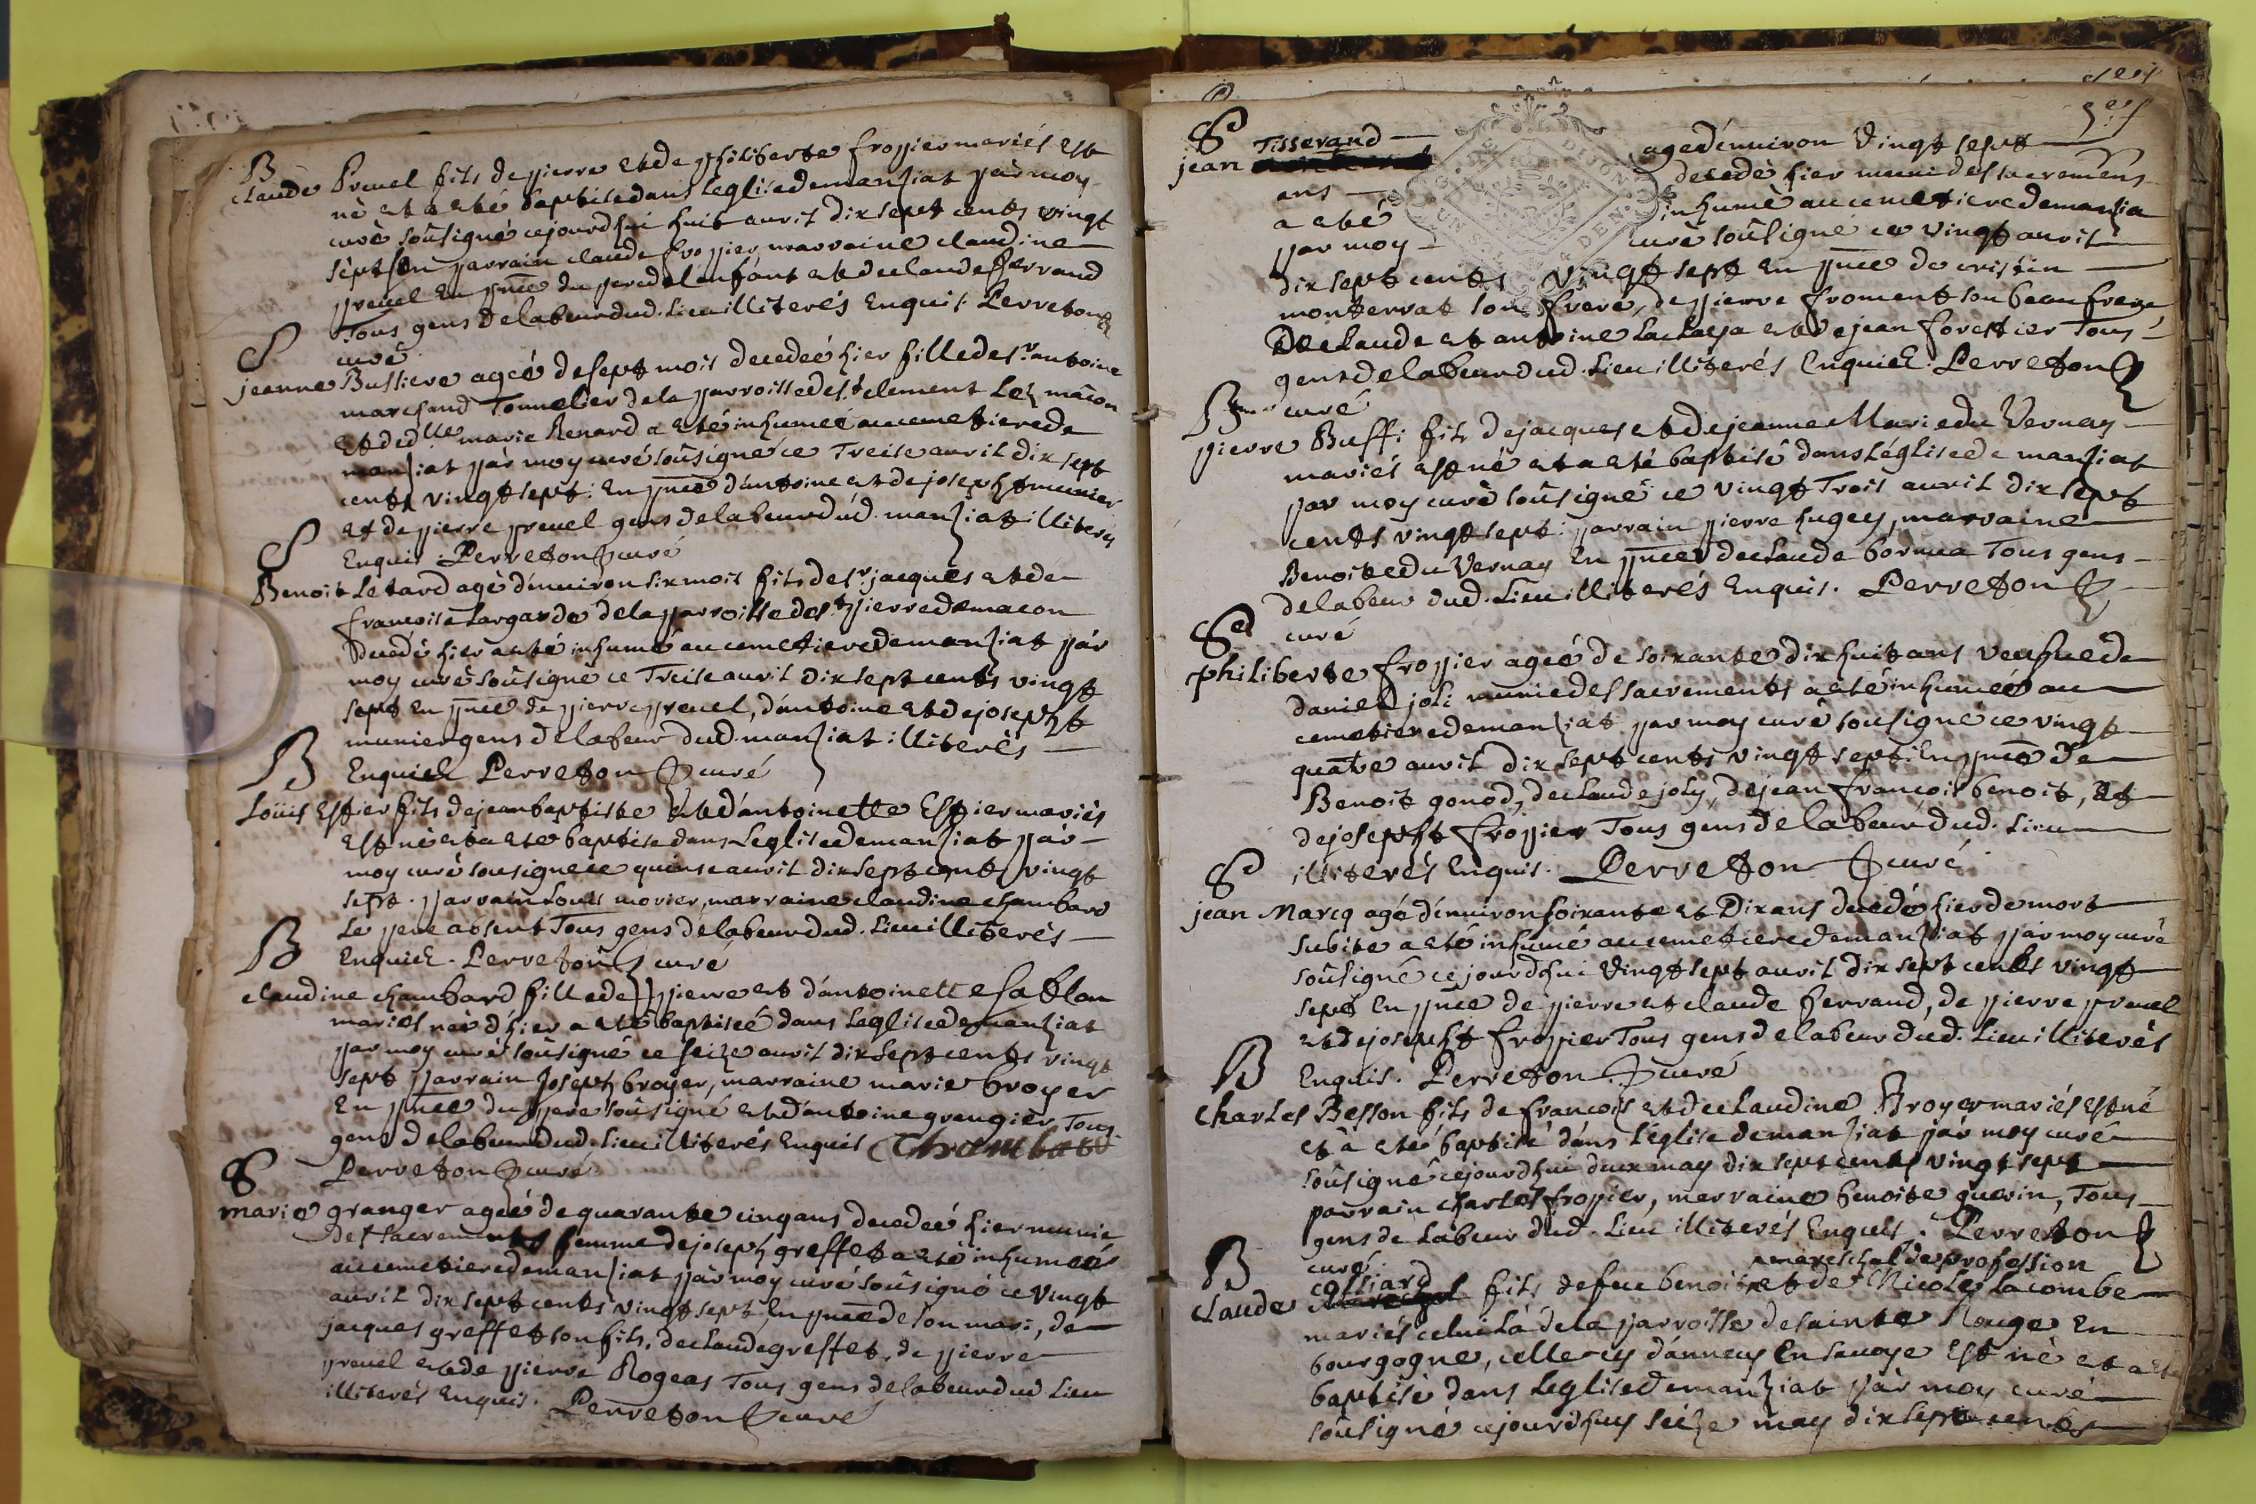 B
claude Preuel fils de pierre et de philiberte fropier mariés est
né et a eté baptisé dans l'eglise de manziat par moy
curé soûsigné cejourdhui huit auril dix sept cents vingt
sept son parrain claude fropier marraine claudine
preuel En pnce du pere de l'enfant et de claude ferrand
Tous gens de labeur dud. lieu illiterés Enquis. Perreton
curé
S
jeanne Bussiere ageé de sept mois decedeé hier fille de sr antoine
marchand Tonnelier de la parroisse de st clement Lez mâcon
et de dlle marie Renard a eté inhumeé au cemetiere de
manziat par moy curé soûsigné ce Treise auril dix sept
cents vingt sept: En pnce d'antoine et de josepht munier
et de pierre preuel gens de labeur dud. manziat illiterés
Enquis. Perreton curé
S
Benoit Letard agé d'enuiron six mois fils de sr jacques et de
francoise Largarde de la parroisse de st pierre de macon
decedé hier a eté inhumé au cemetiere de manziat par
moy curé soûsigné ce Treise auril dix sept cents vingt
sept En pnce de pierre preuel, d'antoine et de josepht
munier gens de labeur dud. manziat illiterés
Enquis Perreton curé
B
Loüis Estier fils de jean baptiste et d'antoinette Estier mariés
est né et a eté baptisé dans Leglise de manziat par
moy curé sousigné ce quinse auril dix sept cents vingt
sept. parrain Louis morier, marraine claudine chambard
Le pere absent Tous gens de labeur dud. Lieu illiterés
Enquis. Perreton curé
B
claudine chambard fille de pierre et d'antoinette sablon
mariés neé d'hier a eté baptiseé dans Leglise de manziat
par moy curé soûsigné ce seize auril dix sept cents vingt
sept parrain Joseph broyer, marraine marie broyer
En pnce du pere soûsigné et d'antoine grangier Tous
gens de labeur dud. Lieu illiterés Enquis Chambard
Perreton curé
S
marie granger ageé de quarante cinq ans decedeé hier munie
des sacrements femme de joseph greffet a eté inhumeé
au cemetiere de manziat par moy curé soûsigné ce vingt
auril dix sept cents vingt sept, En pnce de son mari, de
jacques greffet son fils, de claude greffet, de pierre
preuel et de pierre Rogeas Tous gens de labeur dud Lieu
illiterés Enquis. Perreton curé
S
Tisserand
jean agé d'enuiron vingt sept
ans decedé hier muni des sacremens
a eté inhumé au cemetiere de manzia
par moy curé soûsigné ce vingt auril
dix sept cents vingt sept En pnce de cristin
monterrat son frere, de pierre froment son beau frere
De claude et antoine et de jean forestier Tous
gens de labeur dud. Lieu illiterés Enquis. Perreton
curé
B
pierre Buffi fils de jacques et de jeanne Marie du Vernay
mariés est né et a eté baptisé dans L'église de manziat
par moy curé soûsigné ce vingt Trois auril dix sept
cents vingt sept: parrain pierre hugey, marraine
Benoite du Vernay En pnce de claude bornua Tous gens
de labeur dud. Lieu illiterés Enquis. Perreton
curé
S
philiberte fropier ageé de soixante dix huit ans veufue de
daniel joli munie des sacrements a eté inhumeé au
cemetiere de manziat par moy curé sousigné ce vingt
quatre auril dix sept cents vingt sept: En pnce de
Benoit gonod, de claude joly, de jean francois benoit, et
de josepht fropier Tous gens de labeur dud. Lieu
illiterés Enquis. Perreton curé
S
jean Marcq agé d'enuiron soixante et Dix ans decedé hier de mort
subite a eté inhumé au cemetiere de manziat par moy curé
soûsigné cejourdhui vingt sept auril dix sept cents vingt
sept En pnce de pierre et claude ferrand, de pierre preuel
et de josepht fropier Tous gens de labeur dud. Lieu illiterés
Enquis. Perreton curé
B
Charles Besson fils de francois et de claudine Broyer mariés est né
et a eté baptisé dans L'église de manziat par moy curé
soûsigné cejourdhui deux may dix sept cents vingt sept
parrain charles fropier, marraine benoite guerin, Tous
gens de Labeur dud. Lieu illiterés Enquis. Perreton
curé
B
colliard mareschal de profession
claude fils de feu benoit et de Nicole Lacombe
mariés celui la de la parroisse de sainte Rouge En
bourgogne, celle-cy d'annecy En sauoye Est né et a eté
baptisé dans Leglise de manziat par moy curé
soûsigné cejourdhuy seize may dix sept cents